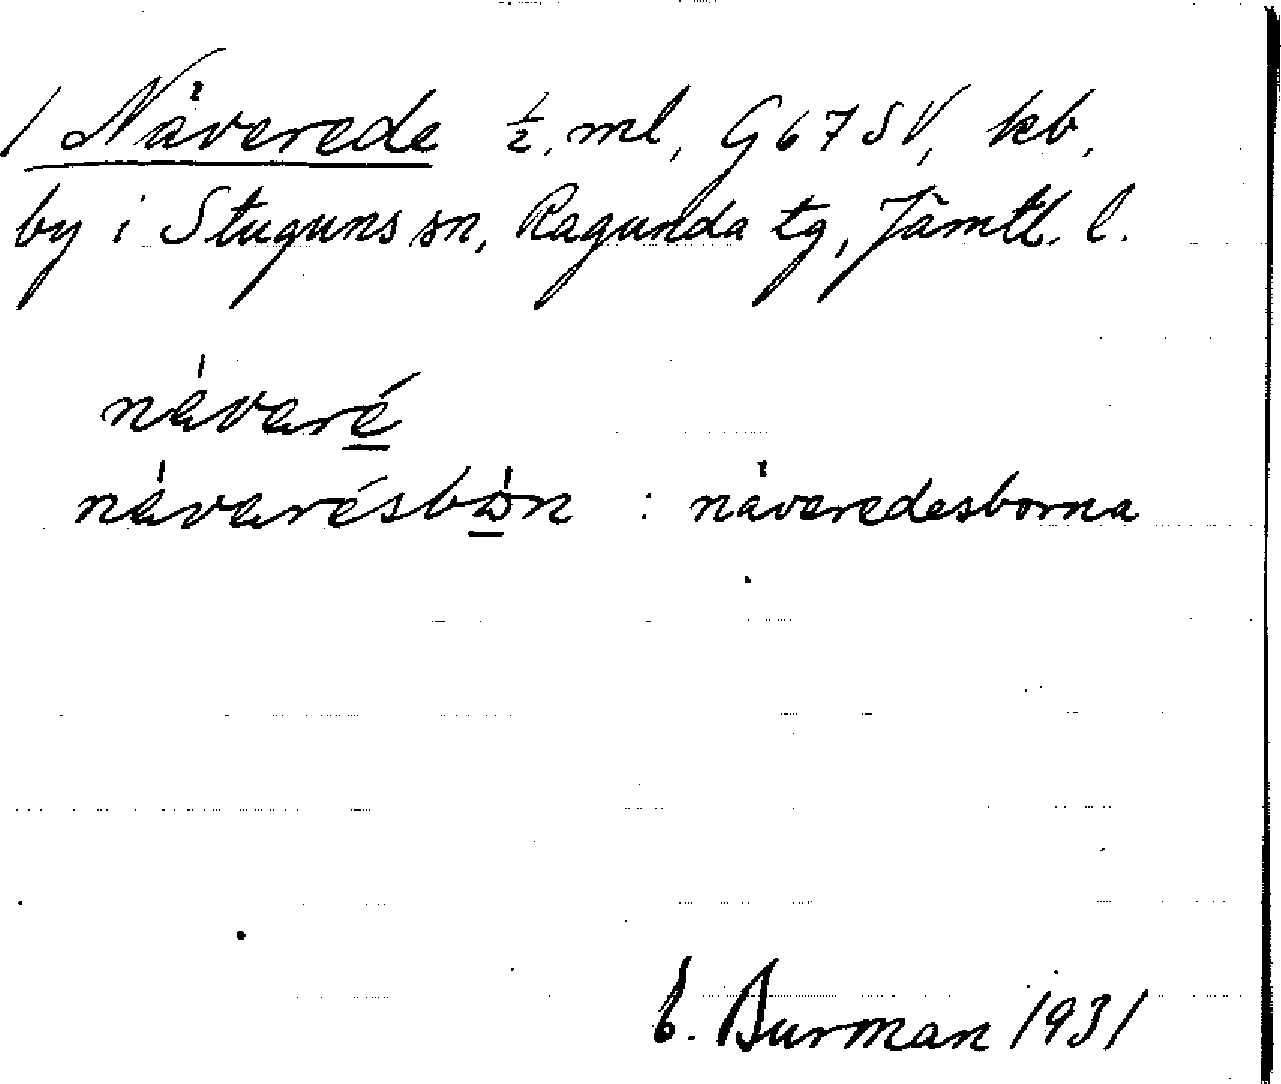 / Nåverede ½ ml, G67SV, kb,
by i Stuguns sn, Ragunda tg, Jämtl. l.
návaré
návarésbòn : nåveredesborna
E. Burman 1931